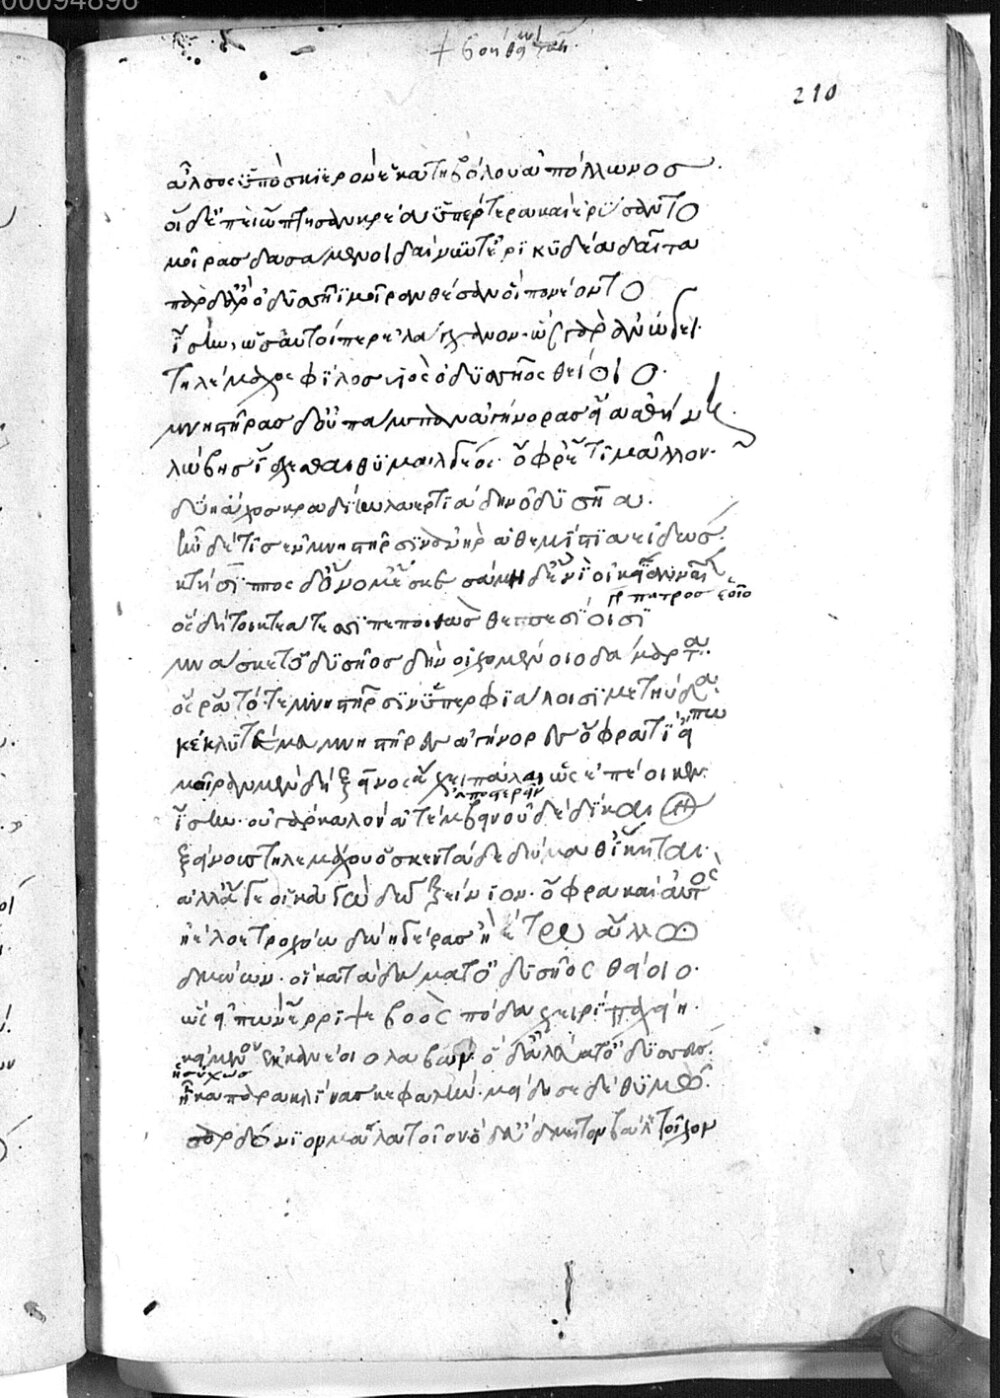 + βοήθει
210
ἄλσος ὕπο σκιερὸν ἑκατηβόλου ἀπόλλωνος.
οἱ δ' ἐπεὶ ὤπτησαν κρέα ὑπέρτερα καὶ ἐρύσαντο
μοίρας δασάμενοι δαίνυντ' ἐρικυδέα δαῖτα
πὰρ δ' ἄρ' ὀδυσῆϊ μοῖραν θέσαν οἳ πονέοντο
ἴσην, ὡς αὐτοί περ ἐλάγχανον· ὣς γὰρ ἀνώγει.
τηλέμαχος φίλος υἱὸς ὀδυσῆος θείοιο.
μνηστῆρας δ' οὐ πάμπαν ἀγήνορας εἴα ἀθήνη.
λώβης ἴσχεσθαι θυμαλγέος· ὄφρ' ἔτι μᾶλλον.
δύη ἄχος κραδίην λαερτιάδην ὀδυσῆα.
ἦν δέ τις ἐν μνηστῆρσιν ἀνὴρ ἀθεμίστια εἰδώς.
κτήσιππος δ' ὄνομ' ἔσκε σάμῃ δ' ἐνὶ οἰκία ναῖεν
γρ πατρος ἑοῖο
ὃς δή τοι κτεάτεσι πεποιθὼς θεσπεσίοισι
μνάσκετ' ὀδυσῆος δὴν οἰχομένοιο δάμαρτα.
ὅς ῥα τότε μνηστῆρσιν ὑπερφιάλοισι μετηύδα.
κέκλυτέ μευ μνηστῆρες ἀγήνορες ὄφρα τι εἴπω
μοῖραν μὲν δὴ ξεῖνος ἔχει πάλαι ὡς ἐπέοικεν.
ἀποστερεῖν
ἴσην. οὐ γὰρ καλὸν ἀτέμβειν οὐδὲ δίκαιον
ξείνους τηλεμάχου ὅς κεν τάδε δώμαθ' ἵκηται.
ἀλλ' ἄγε οἱ καὶ ἐγὼ δῶ ξείνιον. ὄφρα καὶ αὐτὸς
ἠὲ λοετροχόω δώῃ γέρας ἠέ τῳ ἄλλῳ
δμώων. οἳ κατὰ δώματ' ὀδυσῆος θείοιο.
ὣς εἰπὼν ἔρριψε βοὸς πόδα χειρὶ παχείῃ.
κείμενον ἐκ κανέοιο λαβών· ὁ δ' ἀλεύατ' ὀδυσσεύς.
ἡσύχως
ἦκα παρακλίνας κεφαλήν. μείδησε δὲ θυμῷ.
σαρδόνιον μάλα τοῖον ὁ δ' εὔδμητον βάλε τοῖχον